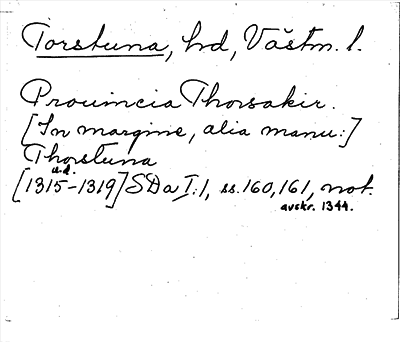 Torstuna, hd, Västm. l.
Prouincia Thorsakir.
[In margine, alia manu:]
Thorstuna
u.d.
[1315-1319] SDa I:1, ss. 160, 161, not.
avskr. 1344.